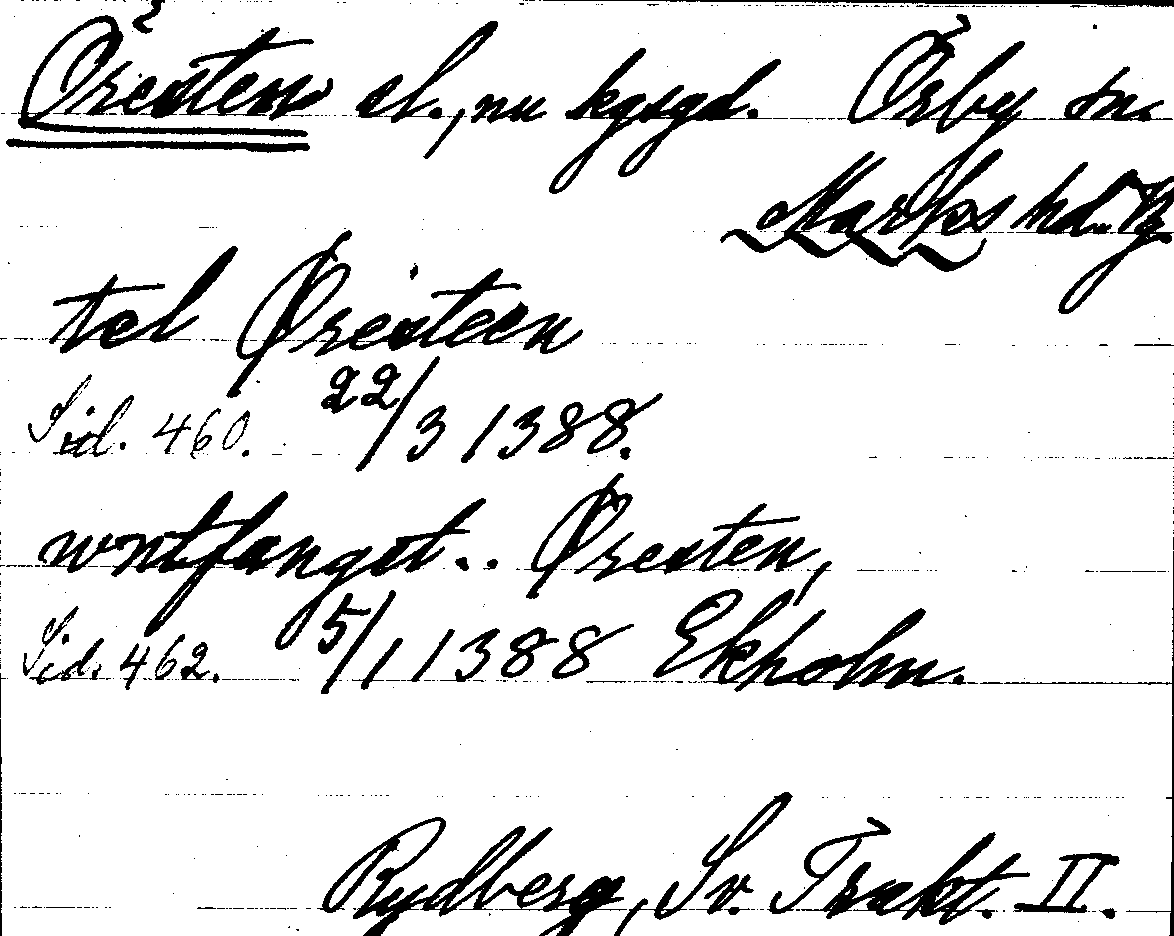 Öresten sl., nu kgsgd. Örby sn.
Marks hd. Vg
tel Øresteen
Sid. 460. 22/3 1388.
wntfangst.. Øresten,
Sid. 462. 5/1 1388 Ekholm.
Rydberg, Sv. Trakt. II.